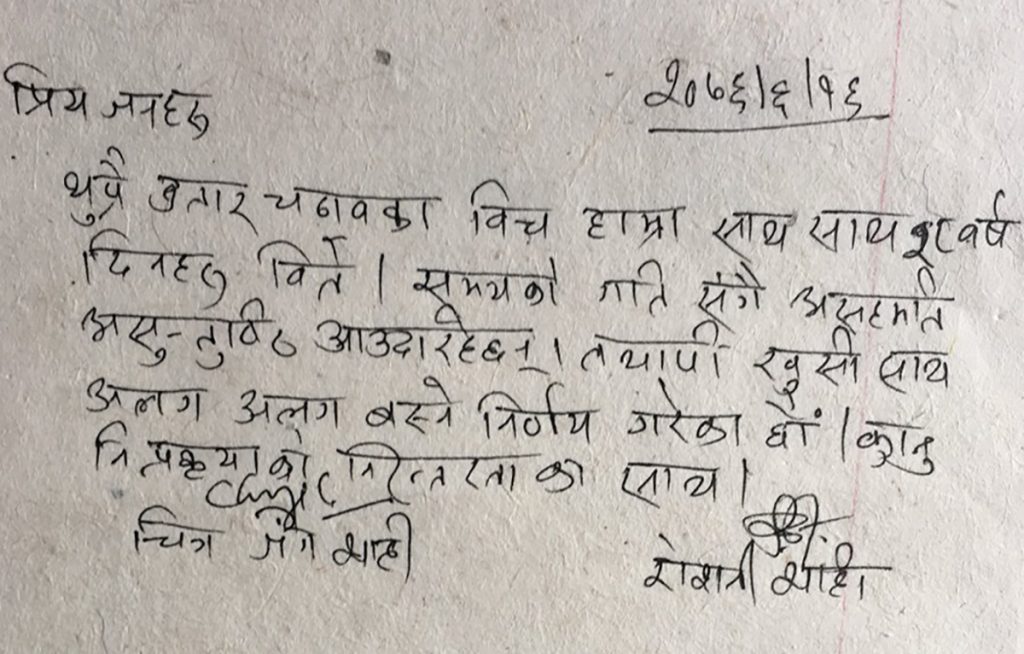 प्रिय जनहरु
२०७६/६/१६
थुप्रै उतार चढावका विच हाम्रा साथ साथ १८ वर्ष
दिनहरु विते । समयको गति संगै असहमति
असन्तुष्टि आउदारहेछन् । तथापी खुसी साथ
अलग अलग बस्ने निर्णय गरेका छौं । कानु
नि प्रकृयाको निरन्तरताका साथ ।
चित्र जंग शाही
रोशनी शाही